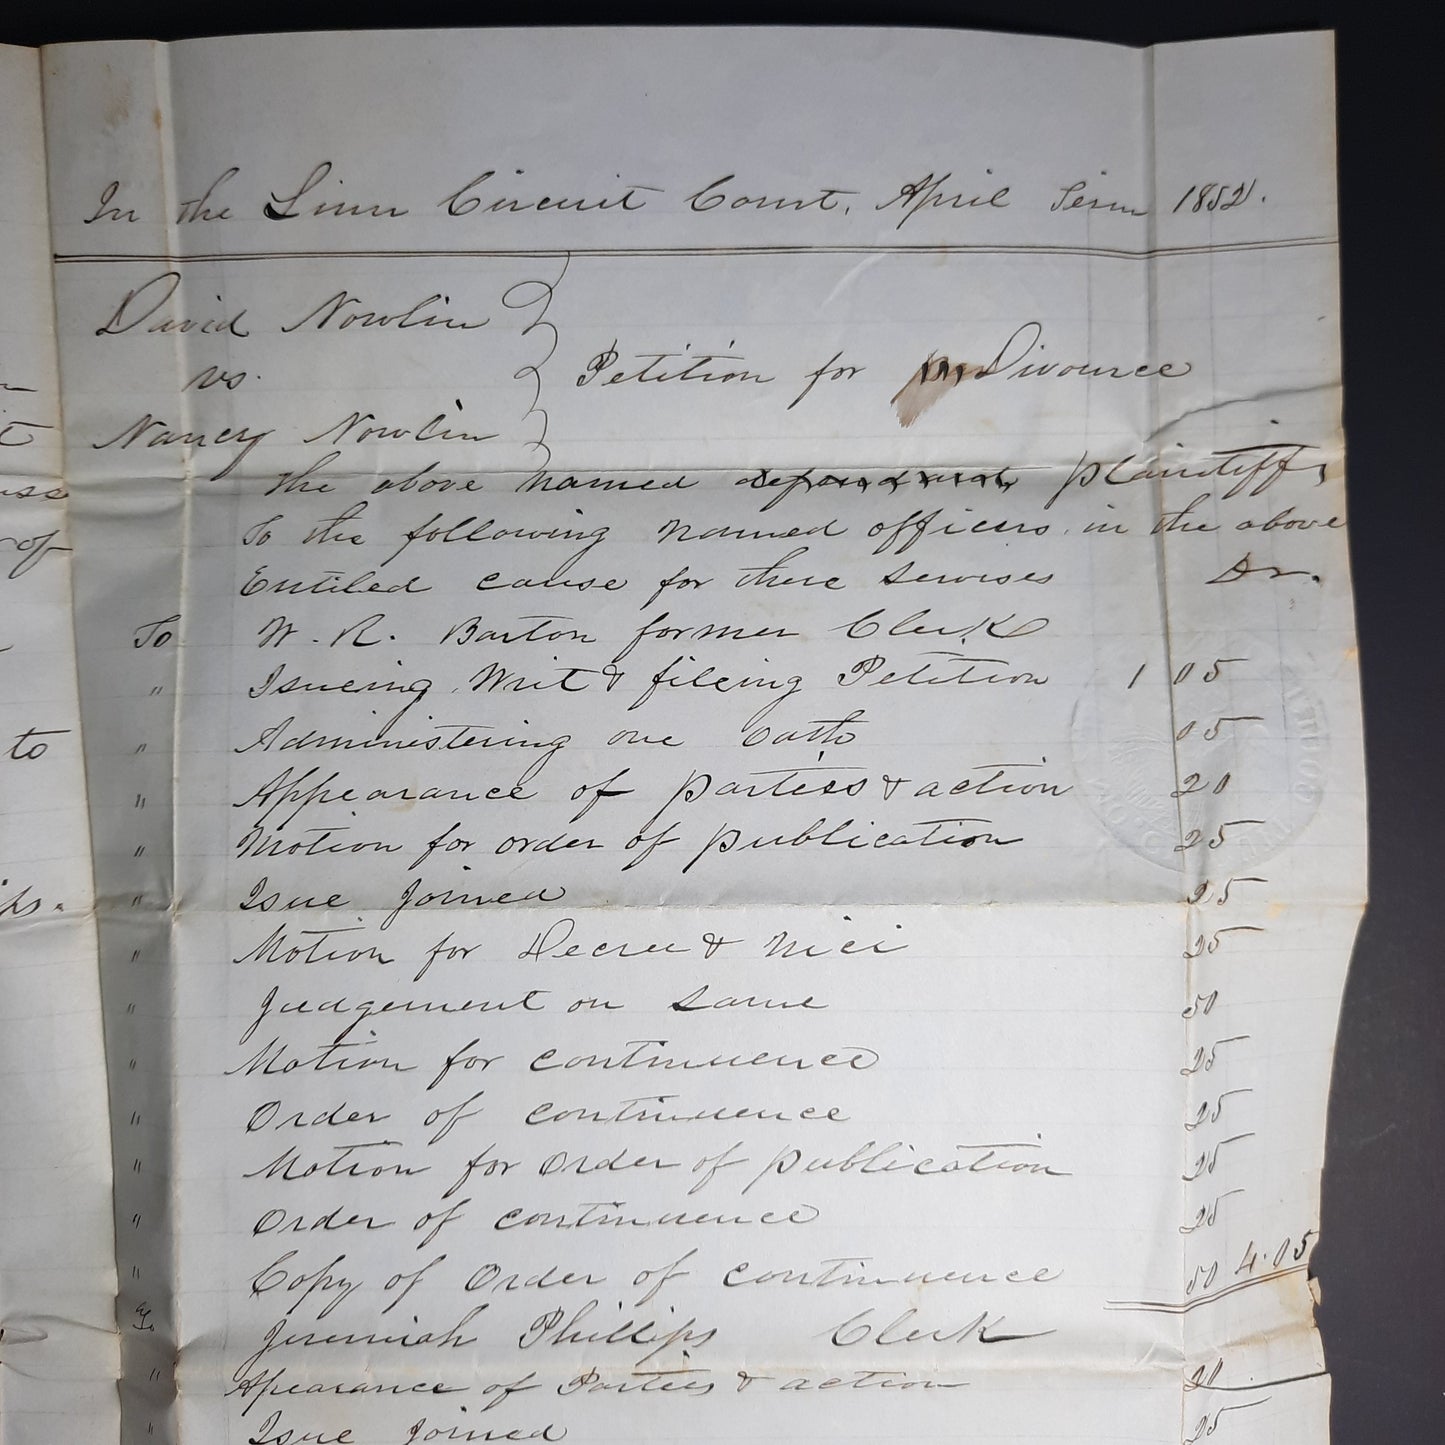 In the Linn Circuit Court, April Term 1852.
David Nowlin
vs.
Petition for Divource
Nancy Nowlin
The above named defendant plaintiff,
To the following named officers in the above
Entiled cause for there servises Dr.
To W. R. Barton former Clerk
" Isueing Writ & fileing Petition 1 05
" Administering one Oath 05
" Appearance of parties & action 20
" Motion for order of publication 25
" Isue Joined 25
" Motion for Decree & nici 25
" Judgement on same 50
" Motion for continuence 25
" Order of continuence 25
" Motion for Order of publication 25
" Order of continuence 25
" Copy of Order of continuence 50 4.05
To Jeremiah Phillips Clerk
" Apearance of Parties & action 20
" Isue Joined 25
to
of